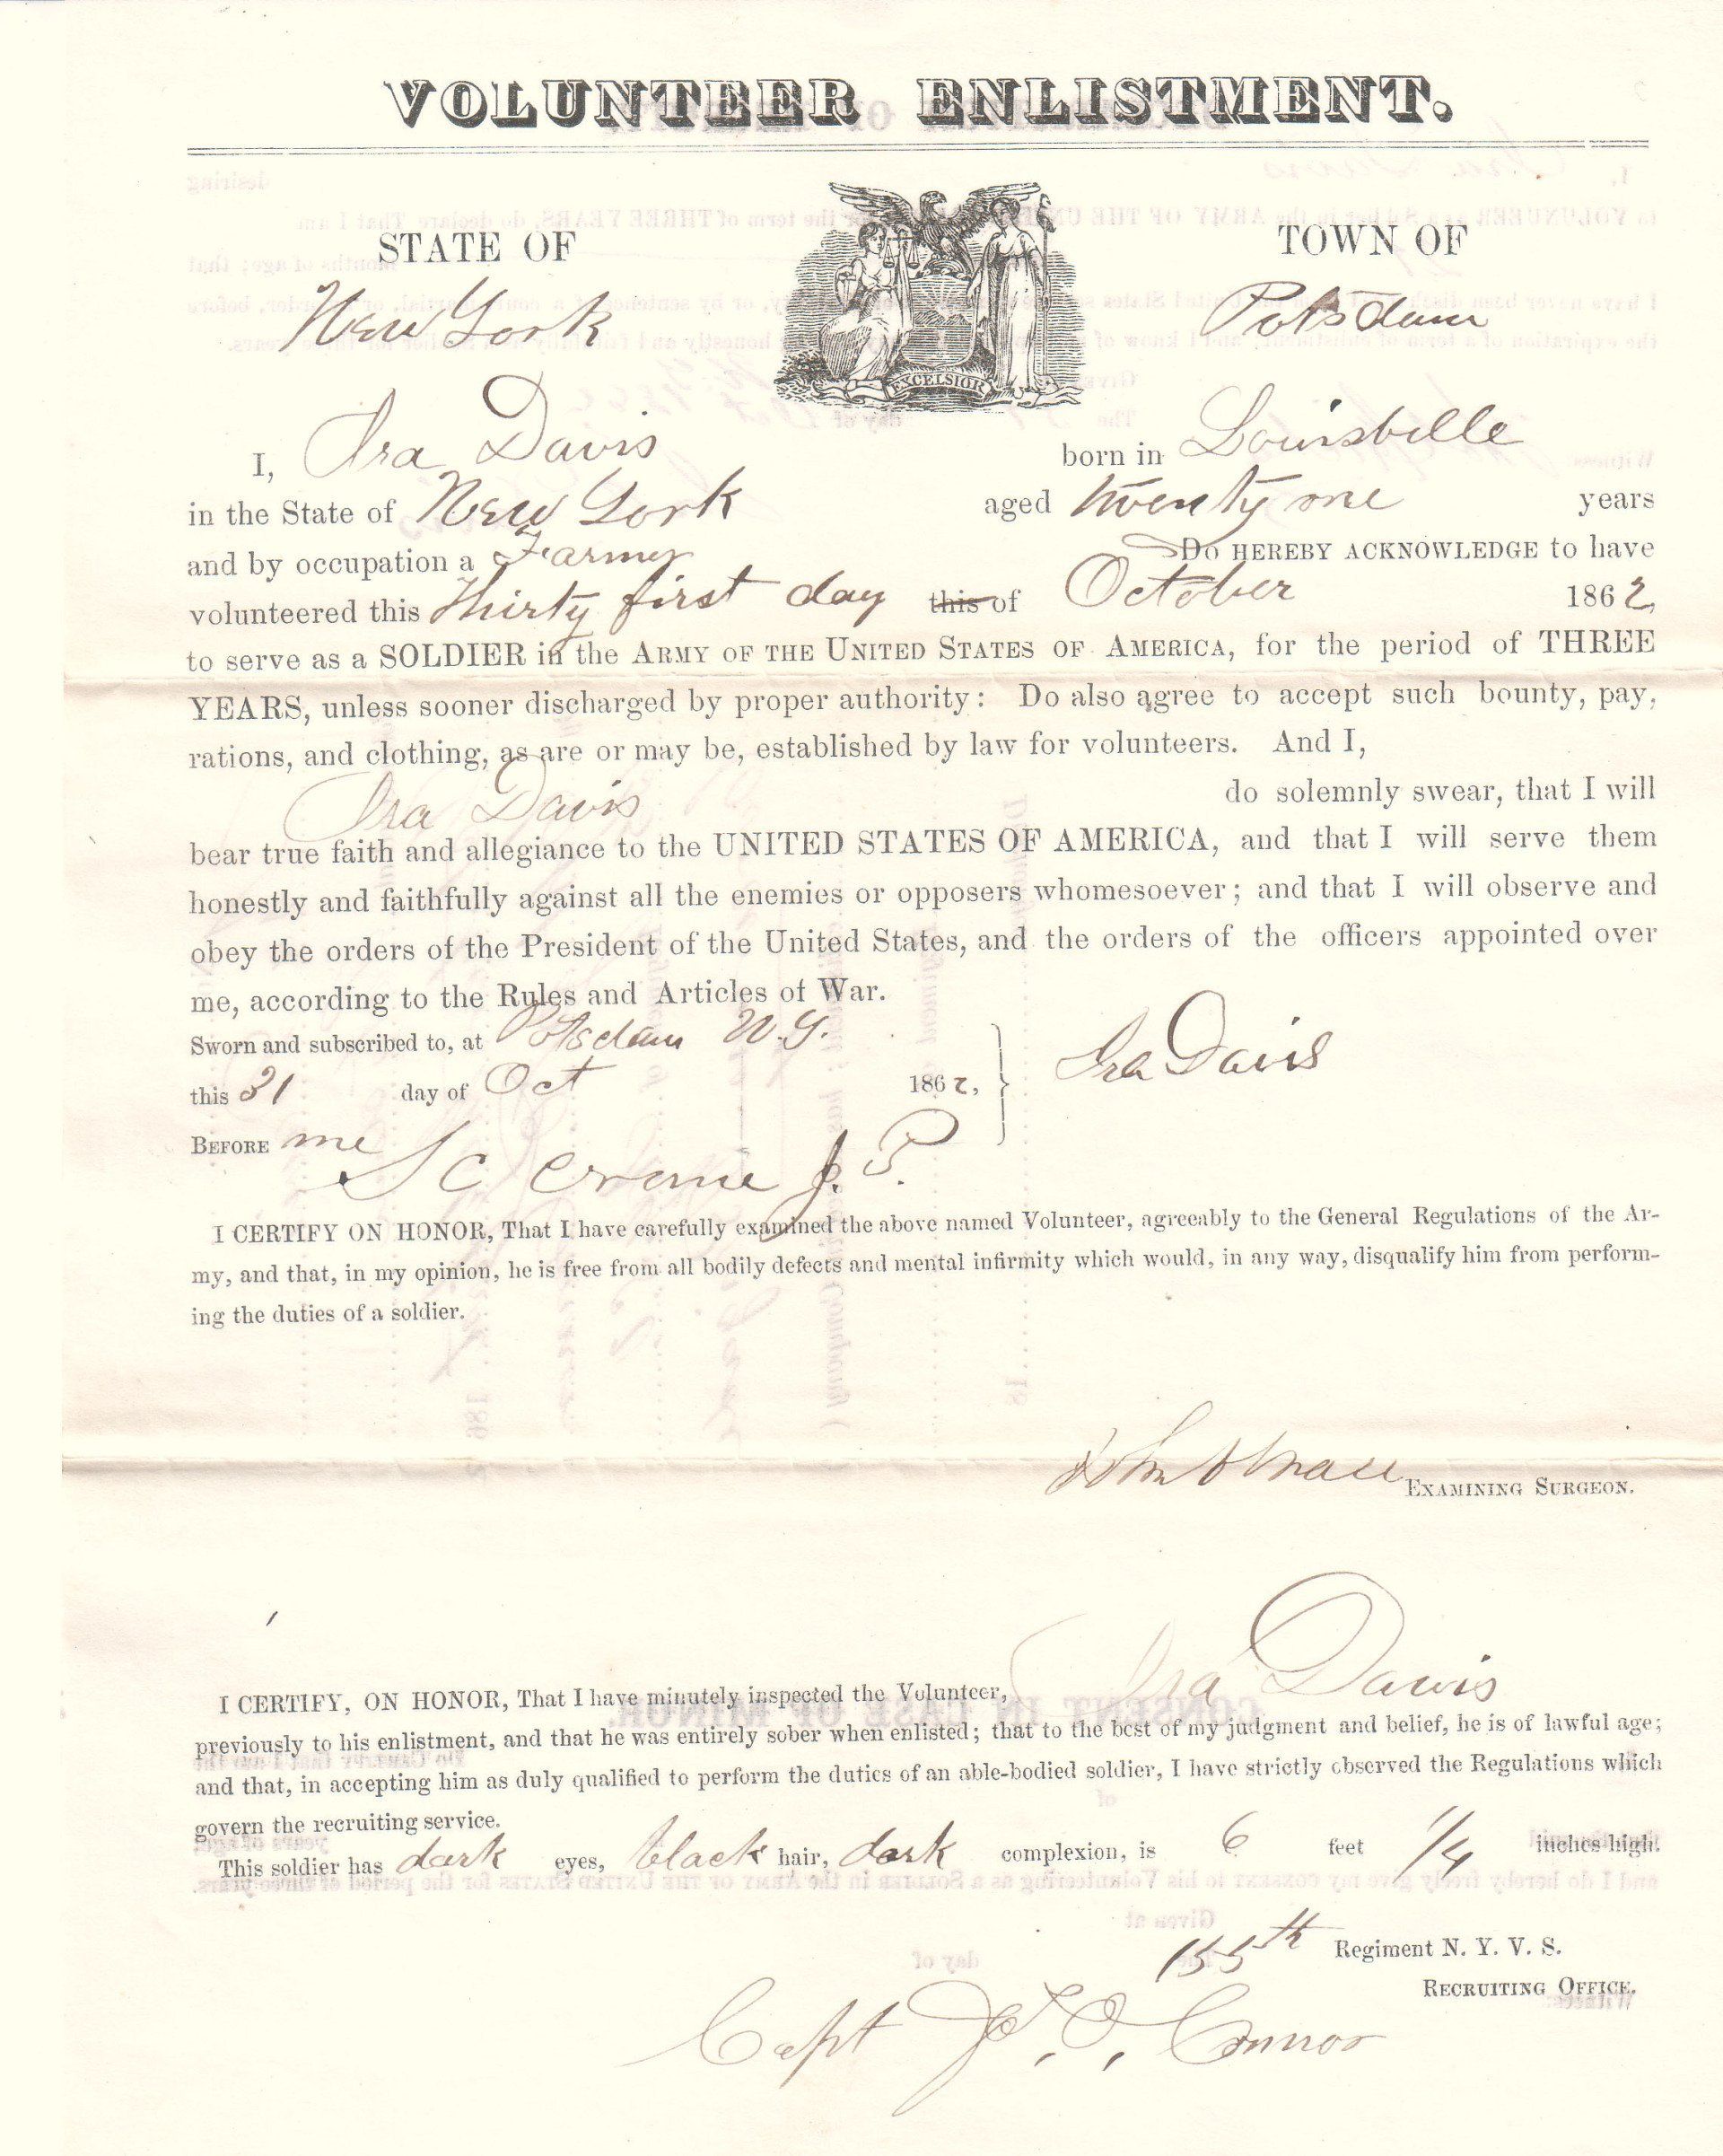 VOLUNTEER ENLISTMENT.
STATE OF
TOWN OF
New York
Potsdam
EXCELSIOR
I, Ira Davis born in Louisbille
in the State of New York aged twenty one years
and by occupation a Farmer Do HEREBY ACKNOWLEDGE to have
volunteered this Thirty first day this of October 1862,
to serve as a SOLDIER in the ARMY OF THE UNITED STATES OF AMERICA, for the period of THREE
YEARS, unless sooner discharged by proper authority: Do also agree to accept such bounty, pay,
rations, and clothing, as are or may be, established by law for volunteers. And I,
Ira Davis do solemnly swear, that I will
bear true faith and allegiance to the UNITED STATES OF AMERICA, and that I will serve them
honestly and faithfully against all the enemies or opposers whomesoever; and that I will observe and
obey the orders of the President of the United States, and the orders of the officers appointed over
me, according to the Rules and Articles of War.
Sworn and subscribed to, at Potsdam N.Y.
this 31 day of Oct 1862, Ira Davis
BEFORE me
S C Crane J. P.
I CERTIFY ON HONOR, That I have carefully examined the above named Volunteer, agreeably to the General Regulations of the Ar-
my, and that, in my opinion, he is free from all bodily defects and mental infirmity which would, in any way, disqualify him from perform-
ing the duties of a soldier.
EXAMINING SURGEON.
I CERTIFY, ON HONOR, That I have minutely inspected the Volunteer, Ira Davis
previously to his enlistment, and that he was entirely sober when enlisted; that to the best of my judgment and belief, he is of lawful age;
and that, in accepting him as duly qualified to perform the duties of an able-bodied soldier, I have strictly observed the Regulations which
govern the recruiting service.
This soldier has dark eyes, black hair, dark complexion, is 6 feet 1/4 inches high.
155th Regiment N. Y. V. S.
RECRUITING OFFICE.
Capt J. O, Connor